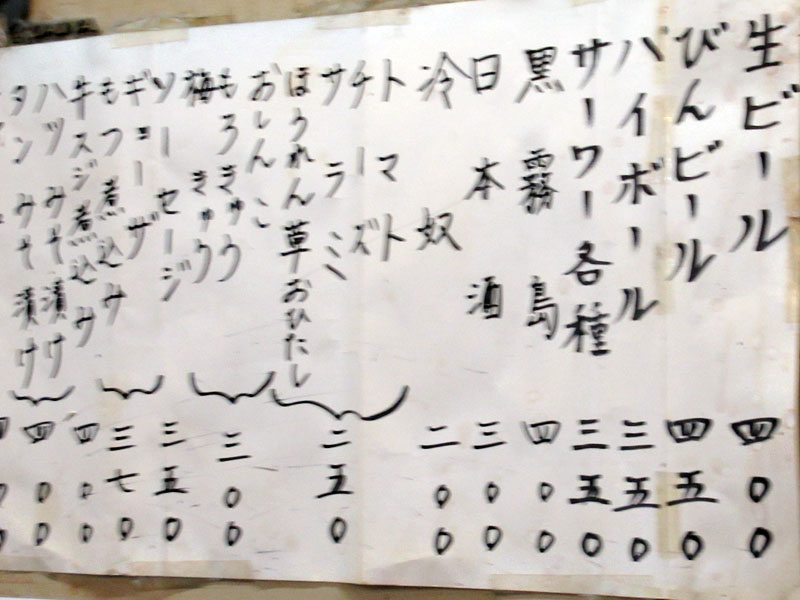 生ビール 四〇〇
びんビール 四五〇
ハイボール 三五〇
サーワー各種 三五〇
黒霧島 四〇〇
日本酒 三〇〇
冷奴 二〇〇
トマト
チーズ
サラミ
ほうれん草おひたし
二五〇
おしんこ
もろきゅう
梅きゅう
三〇〇
ソーセージ
ギョーザ
三五〇
もつ煮込み 三七〇
牛スジ煮込み 四〇〇
ハツみそ漬け
タンみそ漬け
四〇〇